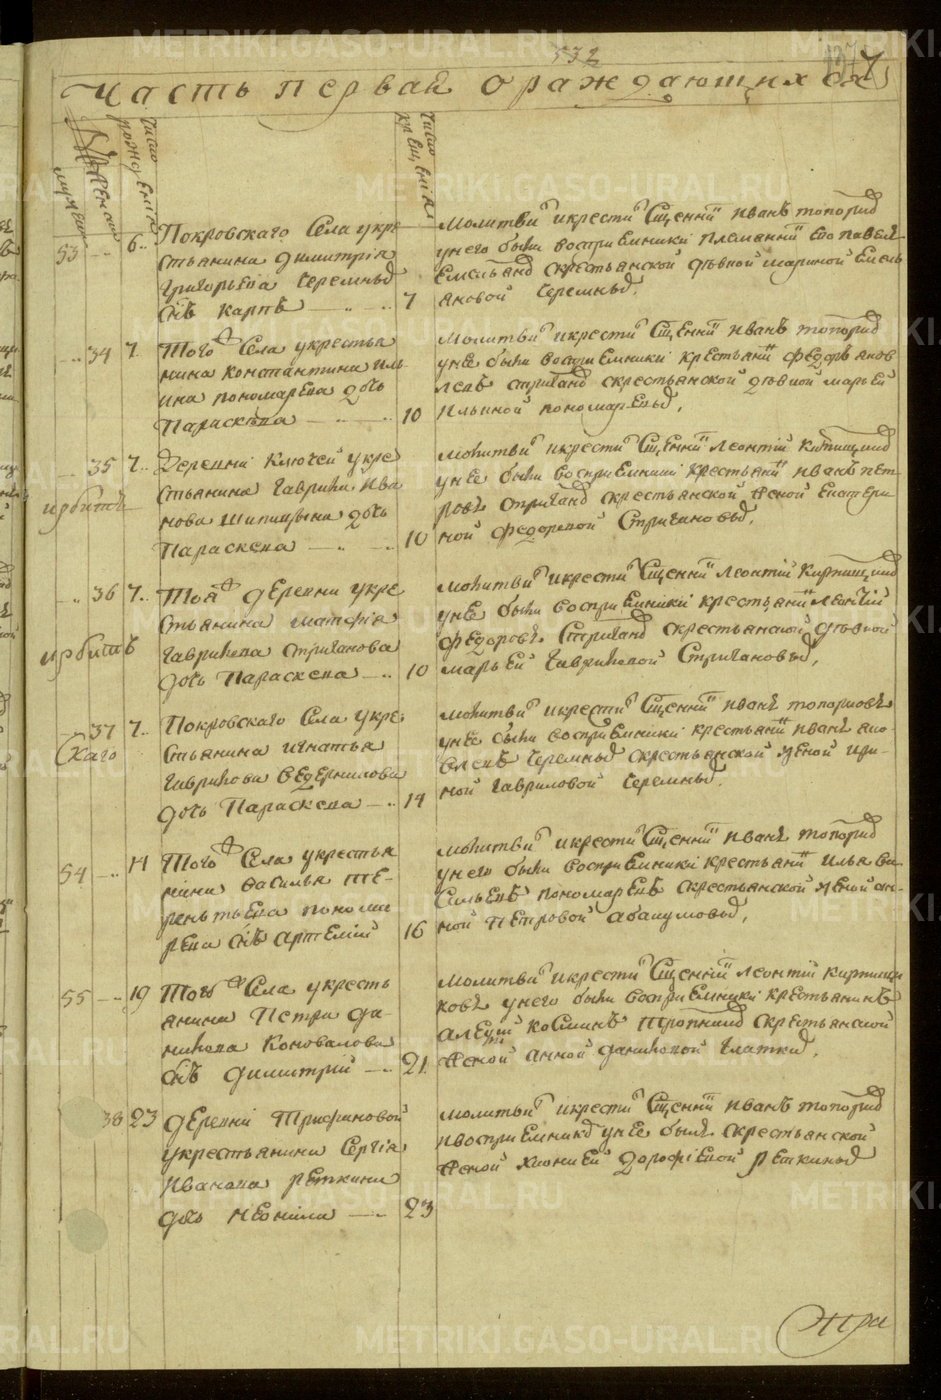 METRIKI.GASO-URAL.RU
532
Часть первая о раждающихся
мужеска
женска
число рождения
число крещения
53 6 Покровскаго Села укре
стьянина димитрія
григорьева Черемныхъ
Снъ карпъ 7
молитвилъ икрестилъ Сщенникъ иванъ топорковъ
унего были восприемники племянникъ его павелъ
Емельановъ скрестьянской дѣвкой мариной Емель
ановой Черемныхъ.
34 7 Того Села укрестья
нина константина иль
ина пономарева дочь
Параскева 10
молитвилъ икрестилъ Сщенникъ иванъ топорковъ
унее были восприемники крестьянинъ федоръ яков
левъ стригановъ скрестьянской дѣвкой марьей
ильиной пономаревыхъ.
35 7 Деревни Ключей укре
стьянина гаврила ива
нова шипицына дочь
Параскева 10
ирбитъ
молитвилъ икрестилъ Сщенникъ леонтій кирпищиковъ
унее были восприемники крестьянинъ иванъ пет
ровъ стригановъ скрестьянской женой екатери
ной федоровой Стригановыхъ.
36 7 Тоя деревни укре
стьянина матфія
гаврилова стриганова
дочь Параскева 10
ирбитъ
молитвилъ икрестилъ Сщенникъ леонтій кирпищиковъ
унее были восприемники крестьянинъ леонтій
федоровъ Стригановъ скрестьянской дѣвкой
марьей гавриловой Стригановыхъ.
37 7 Покровскаго Села укре
стьянина игнатья
гаврилова ведернилова
дочь Параскева 14
молитвилъ икрестилъ Сщенникъ иванъ топорковъ
унее были восприемники крестьянинъ иванъ яко
влевъ Черемныхъ скрестьянской женой ири
ной гавриловой Черемныхъ.
54 14 Того Села укрестья
нина василья те
рентьева понома
рева Снъ артемій 16
молитвилъ икрестилъ Сщенникъ иванъ топорковъ
унего были восприемники крестьянинъ илья ва
сильевъ пономаревъ скрестьянской женой ан
ной петровой абакумовыхъ.
55 19 Того Села укресть
янина Петра да
нилова коновалова
Снъ димитрій 21
молитвилъ икрестилъ Сщенникъ леонтій кирпищи
ковъ унего были восприемники крестьянинъ
алексій косминъ скрестьянской
женой анной даниловой
38 23 деревни Трифоновой
укрестьянина Сергія
иванова реткина
дочь неонила 23
молитвилъ икрестилъ Сщенникъ иванъ топорковъ
ивосприемникъ унее былъ скрестьянской
женой хионией дорофіевой реткиныхъ